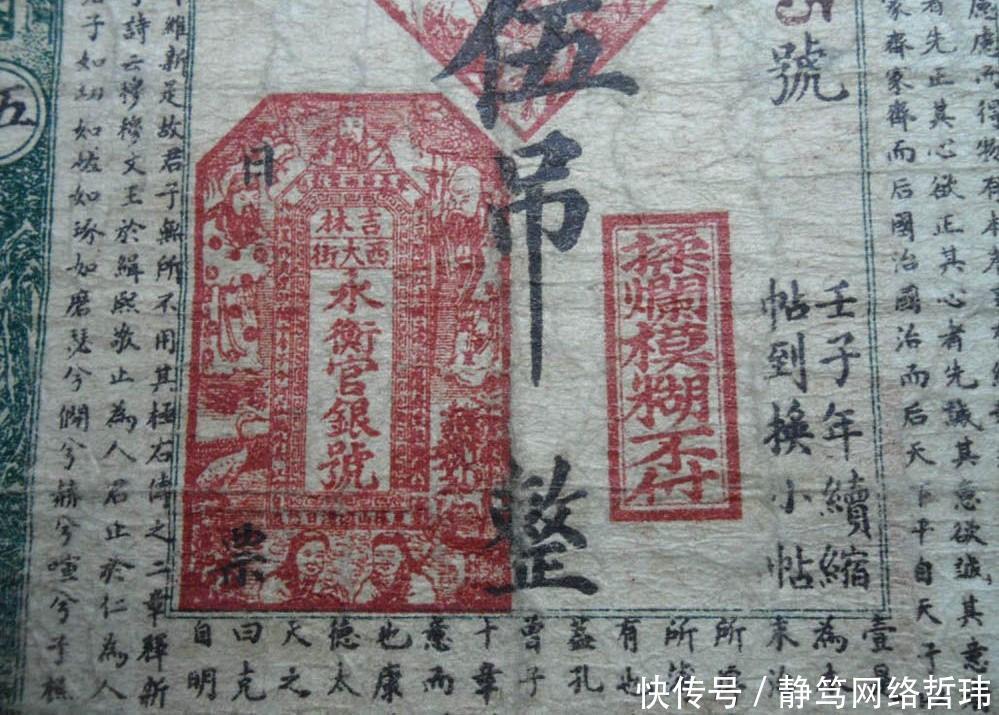 號
伍吊整
壬子年續縮
帖到換小帖
揉爛模糊不付
吉林
西大街
永衡官銀號
日
票
五
慮而得物有本
先正其心欲正其心者先誠其意欲誠其意
家齊家齊而后國治國治而后天下平自天子
壹是
為本
未治
所
所
有也
蓋孔
曾子
十章
意而
也康
德太
天之
曰克
自明
維新是故君子無所不用其極右傳之二章釋新
詩云穆穆文王於緝熙敬止為人君止於仁為人
子如切如磋如琢如磨瑟兮僩兮赫兮喧兮子
快传号／静笃网络哲玮